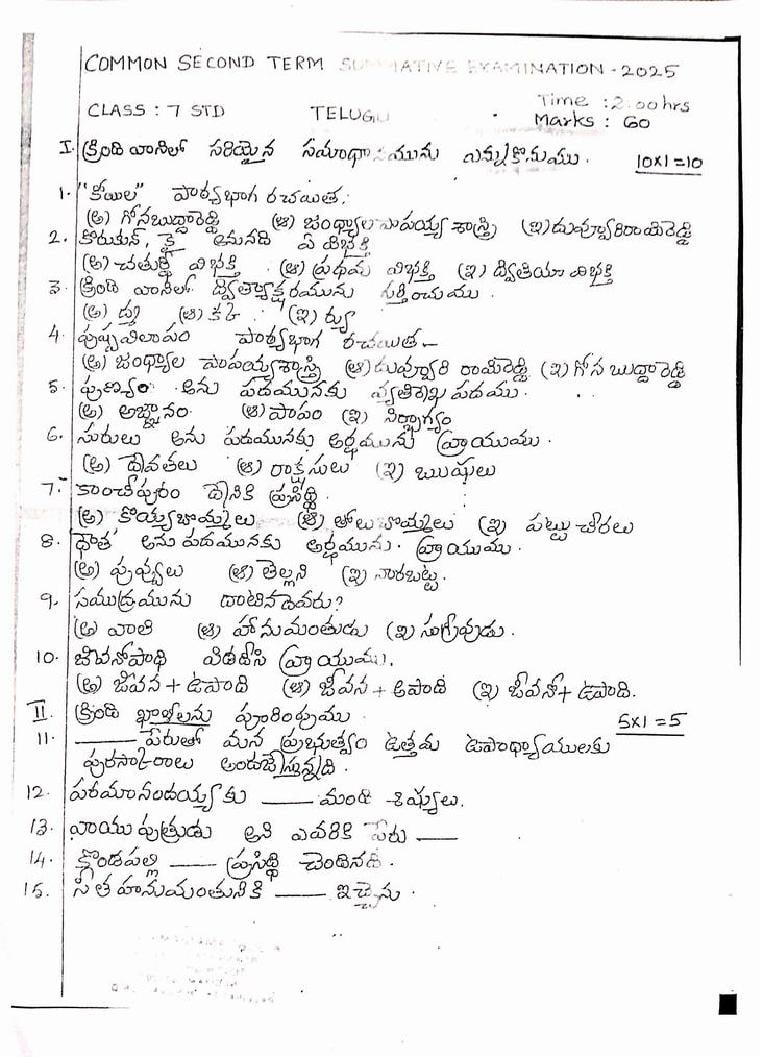 COMMON SECOND TERM SUMMATIVE EXAMINATION - 2025
CLASS : 7 STD TELUGU Time : 2.00hrs
Marks : 60
I. క్రింది వానిలో సరియైన సమాధానమును ఎన్నుకొనుము. 10x1=10
1. "కోయిల" పాఠ్యభాగ రచయిత.
(అ) గోనబుద్దారెడ్డి (ఆ) జంధ్యాల పాపయ్య శాస్త్రి (ఇ) దువ్వూరిరామిరెడ్డి
2. కొరుకున్, కై అనునది ఏ విభక్తి
(అ) చతుర్థీ విభక్తి (ఆ) ప్రథమ విభక్తి (ఇ) ద్వితీయా విభక్తి
3. క్రింది వానిలో ద్విత్వాక్షరమును గుర్తించుము.
(అ) డ్తు (ఆ) క్క (ఇ) ర్యు
4. పుష్పవిలాపం పాఠ్యభాగ రచయిత-
(అ) జంధ్యాల పాపయ్యశాస్త్రి (ఆ) దువ్వూరి రామిరెడ్డి (ఇ) గోన బుద్దారెడ్డి
5. పుణ్యం అను పదమునకు వ్యతిరేఖ పదము.
(అ) అజ్ఞానం (ఆ) పాపం (ఇ) నిర్భాగ్యం
6. సురులు అను పదమునకు అర్థమును వ్రాయుము.
(అ) దేవతలు (ఆ) రాక్షసులు (ఇ) ఋషులు
7. కాంచీపురం దేనికి ప్రసిద్ధి.
(అ) కొయ్యబొమ్మలు (ఆ) తోలుబొమ్మలు (ఇ) పట్టుచీరలు
8. ధౌత అను పదమునకు అర్థమును. వ్రాయుము.
(అ) పువ్వులు (ఆ) తెల్లని (ఇ) నారబట్ట.
9. సముద్రమును దాటినదెవరు?
(అ) వాలి (ఆ) హానుమంతుడు (ఇ) సుగ్రీవుడు.
10. జీవనోపాధి విడదీసి వ్రాయుము.
(అ) జీవన + ఉపాది (ఆ) జీవన + ఆపాది (ఇ) జీవనో + ఉపాది.
II. క్రింది ఖాళీలను పూరింపుము 5x1=5
11. ______ పేరుతో మన ప్రభుత్వం ఉత్తమ ఉపాధ్యాయులకు
పురస్కారాలు అందజేస్తున్నది.
12. పరమానందయ్యకు ____ మంది శిష్యులు.
13. వాయు పుత్రుడు అని ఎవరికి పేరు ____
14. కొండపల్లి ____ ప్రసిద్ధి చెందినది.
15. సీత హనుమంతునికి ____ ఇచ్చెను.